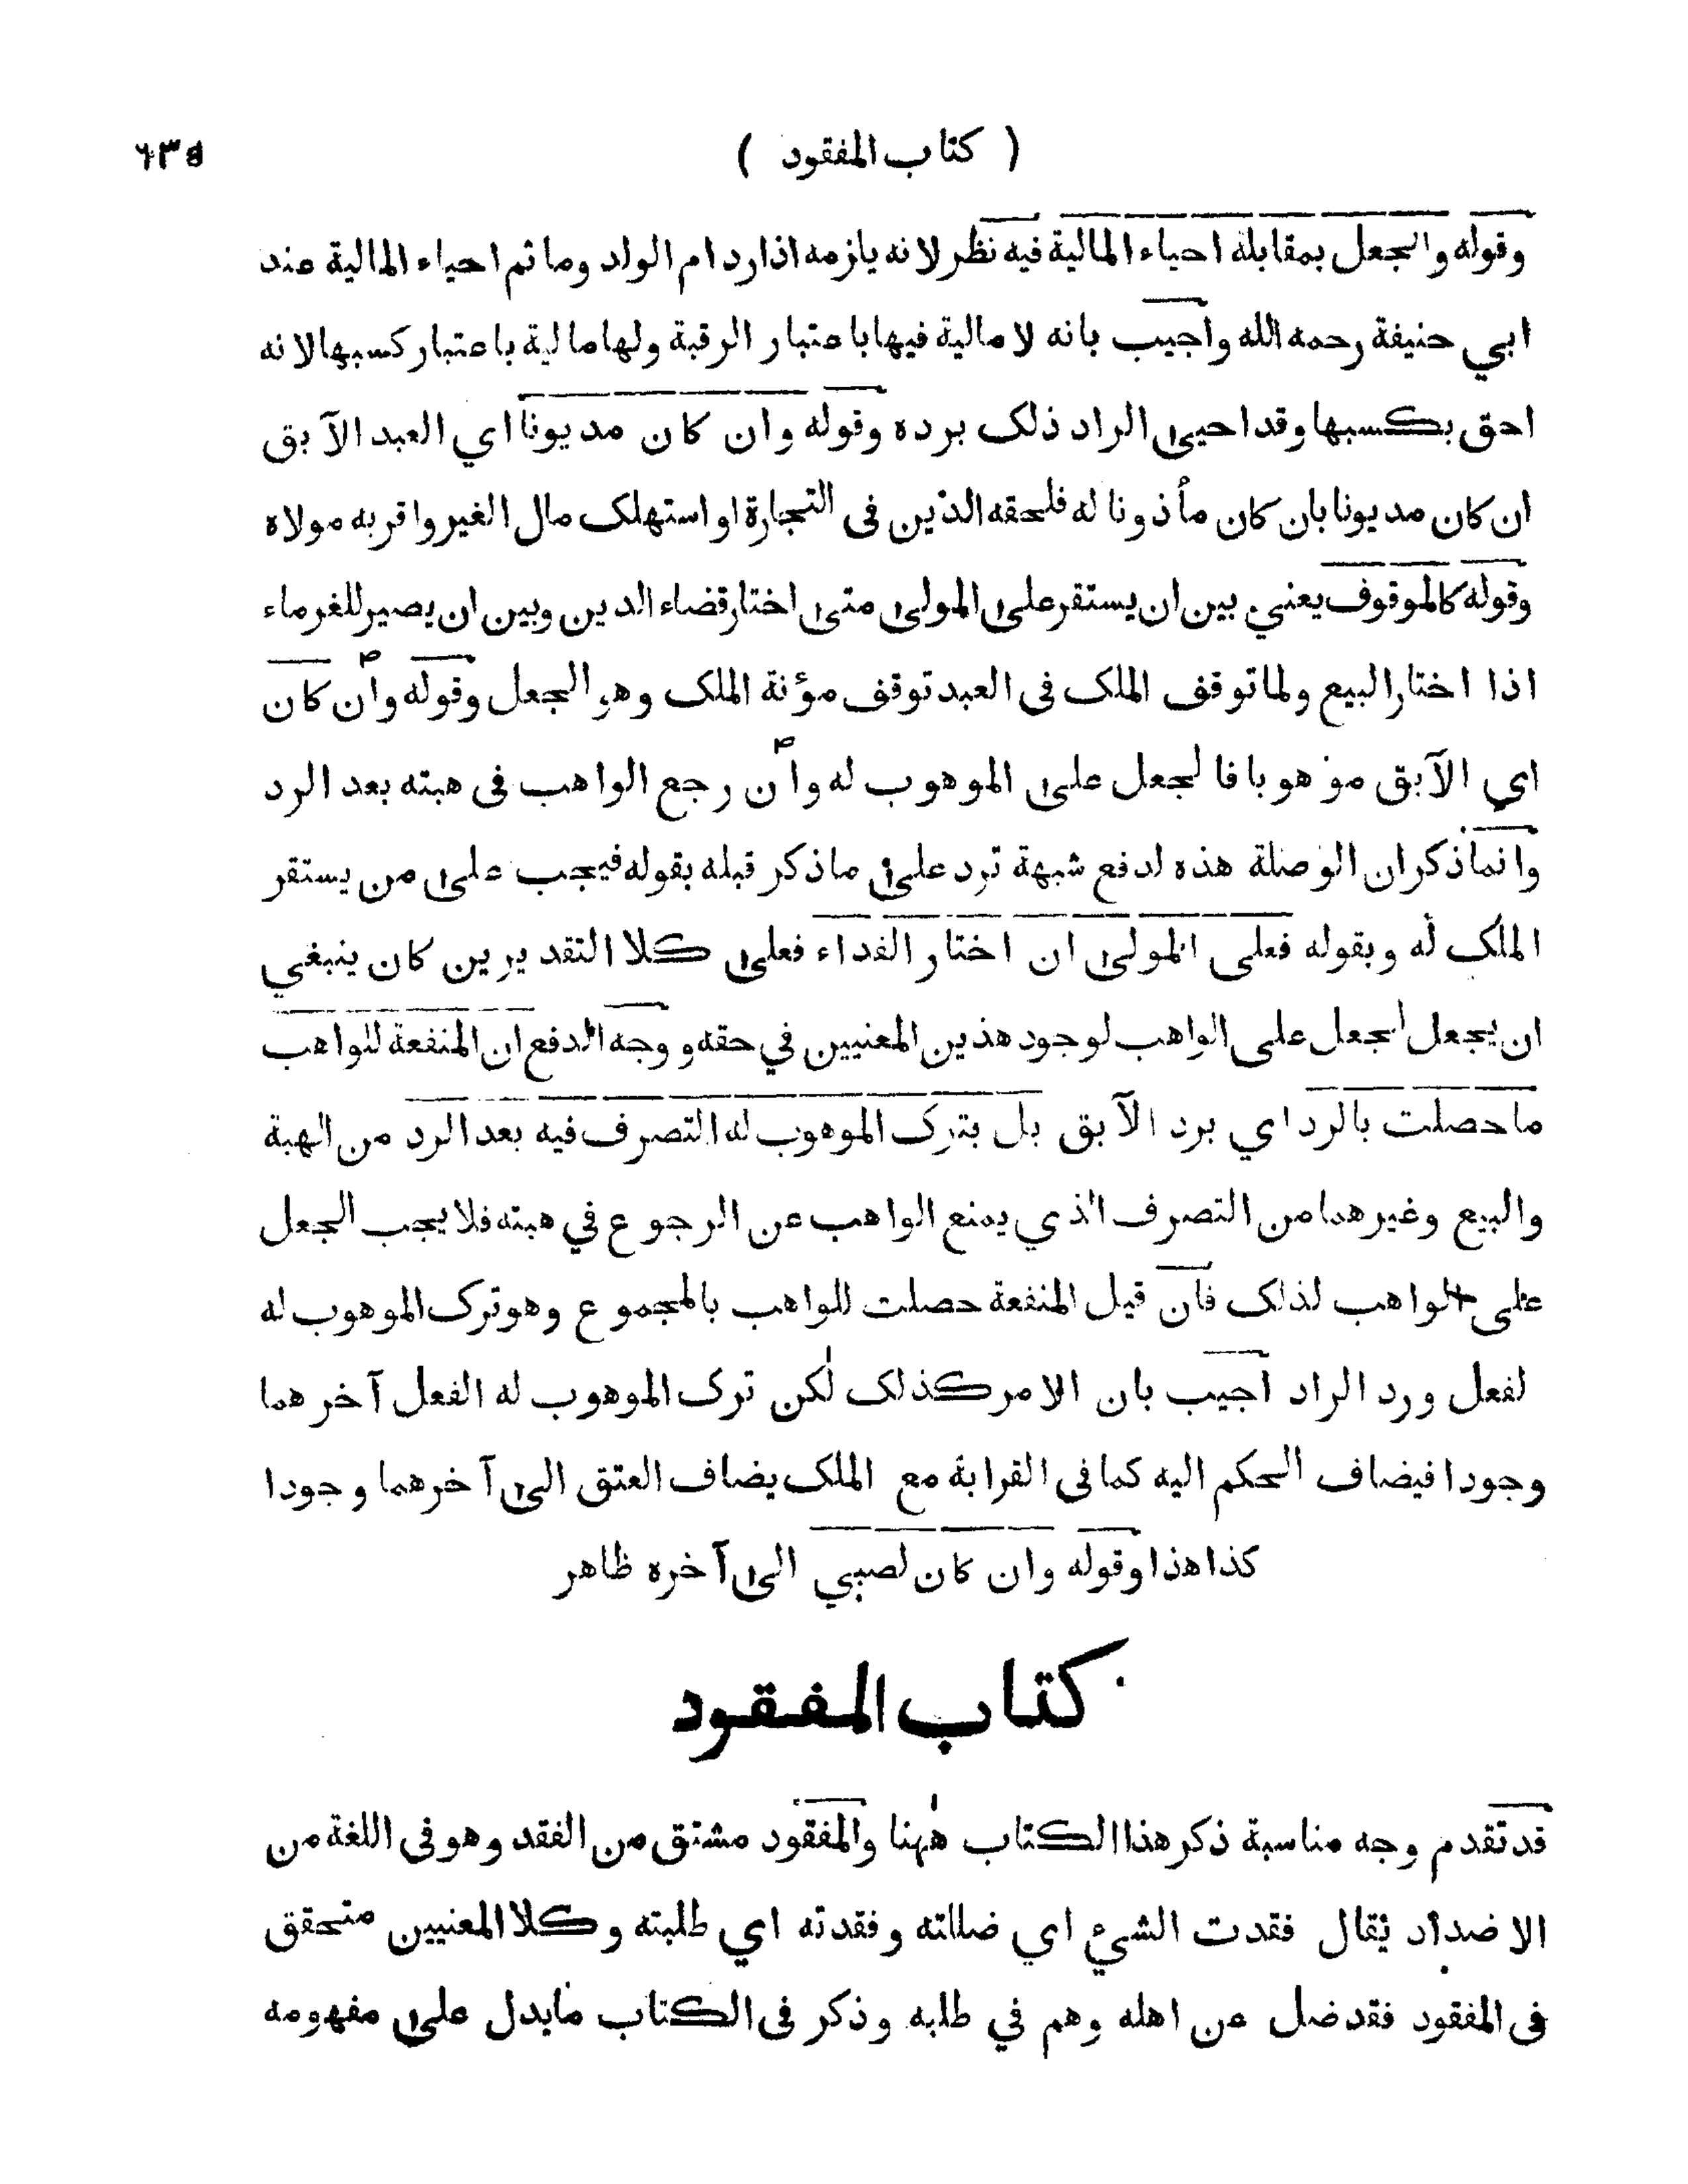 ( كتاب المفقود ) ٦٣٥
وقوله والجعل بمقابلة احياء المالية فيه نظر لانه يلزمه اذا رد ام الولد وما ثم احياء المالية عند
ابي حنيفة رحمه الله واجيب بانه لا مالية فيها باعتبار الرقبة ولها مالية باعتبار كسبها لانه
احق بكسبها وقد احيى الراد ذلك برده وقوله وان كان مديونا اي العبد الآبق
ان كان مديونا بان كان مأذونا له فلحقه الدين فى التجارة او استهلك مال الغير واقر به مولاه
وقوله كالموقوف يعني بين ان يستقر على المولى متى اختار قضاء الدين وبين ان يصير للغرماء
اذا اختار البيع ولما توقف الملك فى العبد توقف مؤنة الملك وهو الجعل وقوله وان كان
اي الآبق موهوبا فالجعل على الموهوب له وان رجع الواهب فى هبته بعد الرد
وانما ذكر ان الوصلة هذه لدفع شبهة ترد على ما ذكر قبله بقوله فيجب على من يستقر
الملك له وبقوله فعلى المولى ان اختار الفداء فعلى كلا التقديرين كان ينبغي
ان يجعل الجعل على الواهب لوجود هذين المعنيين في حقه ووجه الدفع ان المنفعة للواهب
ما حصلت بالرد اي برد الآبق بل بترك الموهوب له التصرف فيه بعد الرد من الهبة
والبيع وغيرهما من التصرف الذي يمنع الواهب عن الرجوع في هبته فلا يجب الجعل
على الواهب لذلك فان قيل المنفعة حصلت للواهب بالمجموع وهو ترك الموهوب له
لفعل ورد الراد اجيب بان الامر كذلك لكن ترك الموهوب له الفعل آخرهما
وجودا فيضاف الحكم اليه كما فى القرابة مع الملك يضاف العتق الى آخرهما وجودا
كذا هذا وقوله وان كان لصبي الى آخره ظاهر
كتاب المفقود
قد تقدم وجه مناسبة ذكر هذا الكتاب ههنا والمفقود مشتق من الفقد وهو فى اللغة من
الاضداد يقال فقدت الشيء اي ضللته وفقدته اي طلبته وكلا المعنيين متحقق
فى المفقود فقد ضل عن اهله وهم في طلبه وذكر فى الكتاب ما يدل على مفهومه